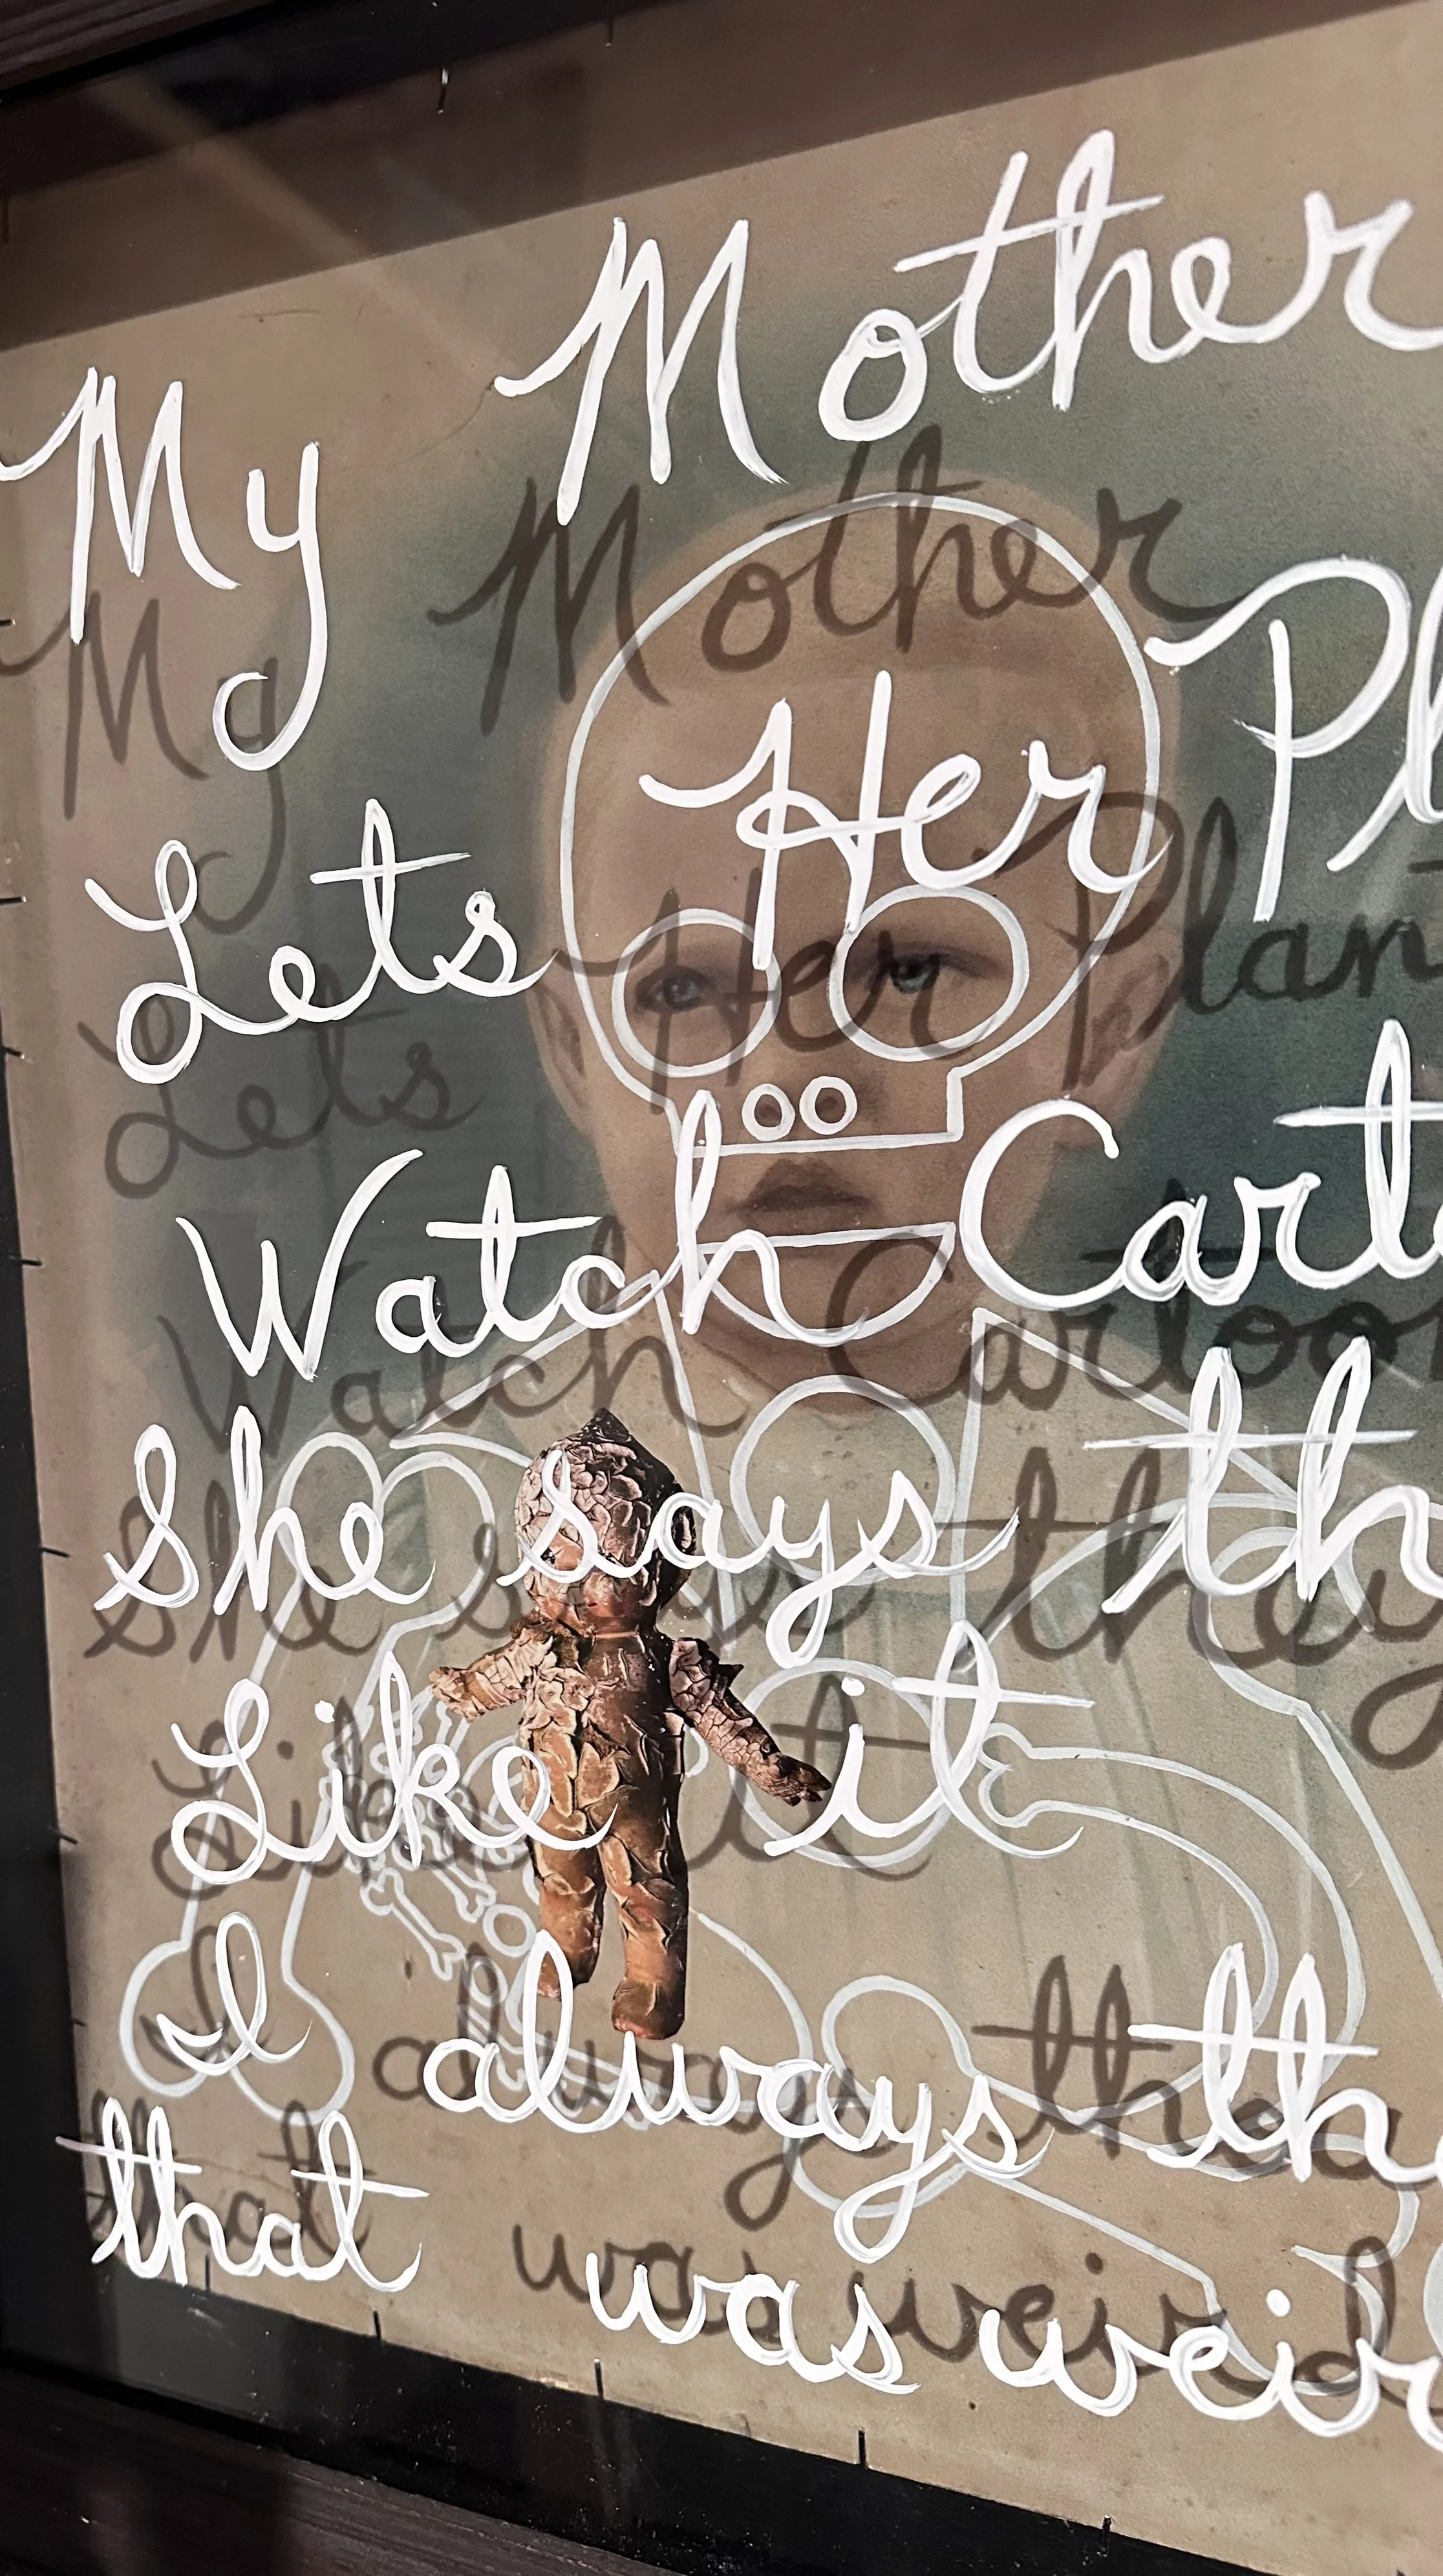 My Mother
Lets Her Plan
Watch Cartoon
She says they
Like it
I always tho
that was weird